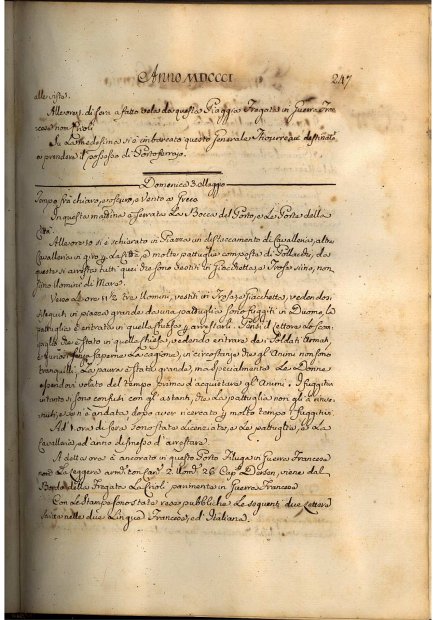 Anno MDCCCI 247
alle viste.
Alle ore 5 di sera a fatto vela da questa Piaggia Fregata in Guerra Fran-
cese nom.
Su la medesima si è imbarcato questo Generale destinato
a prendere il possesso di Portoferrajo.
Domenica 3 Maggio
Tempo frà chiaro, e oscuro, e Vento a Greco
In questa mattina a serrata La Bocca del Porto, e Le Porte della
Città.
Alle ore 10 si è schierato in Piazza un distaccamento di Cavalleria, altra
Cavalleria in giro per La Città, e molte pattuglie composte di Pollacchi, da
questi si arresta tutti quei che sono vestiti in Giacchetta, e non
sono Uomini di Mare.
Verso Le ore 11 ½ tre Uomini, vestiti in e Giacchetta, vedendosi
seguiti in piazza grande da una pattuglia sono fuggiti in Duomo, la
pattuglia è entrata in quella Chiesa per arrestarli. Pensi il Lettore Lo scom-
piglio che è stato in quella Chiesa, vedendo entrare dei Soldati Armati,
senza saperne La cagione, in circostanze che gl'Animi non sono
tranquilli. La paura è stata grande, ma specialmente Le Donne
essendovi voluto del tempo prima d'acquietare gl'Animi. I fuggitivi
intanto si sono confusi con gl'astanti, che La pattuglia non gli à rinve-
nuti, e se n'è andata dopo aver ricercato per molto tempo i fuggitivi
Ad 1 ora di sera sono state Licenziate, e Le pattuglie, e La
Cavalleria, ed anno dismesso d'arrestare.
A detta ora è ancorato in questo Porto in Guerra Francese
nom. Le Leggere arm. con Can. 2 Uom. 26 Cap. viene dal
Bordo della Fregata Le parimente in Guerra Francese
Con Le Stampe sono state rese pubbliche Le seguenti due Lettere
nelle due Lingue Francese, ed Italiana.